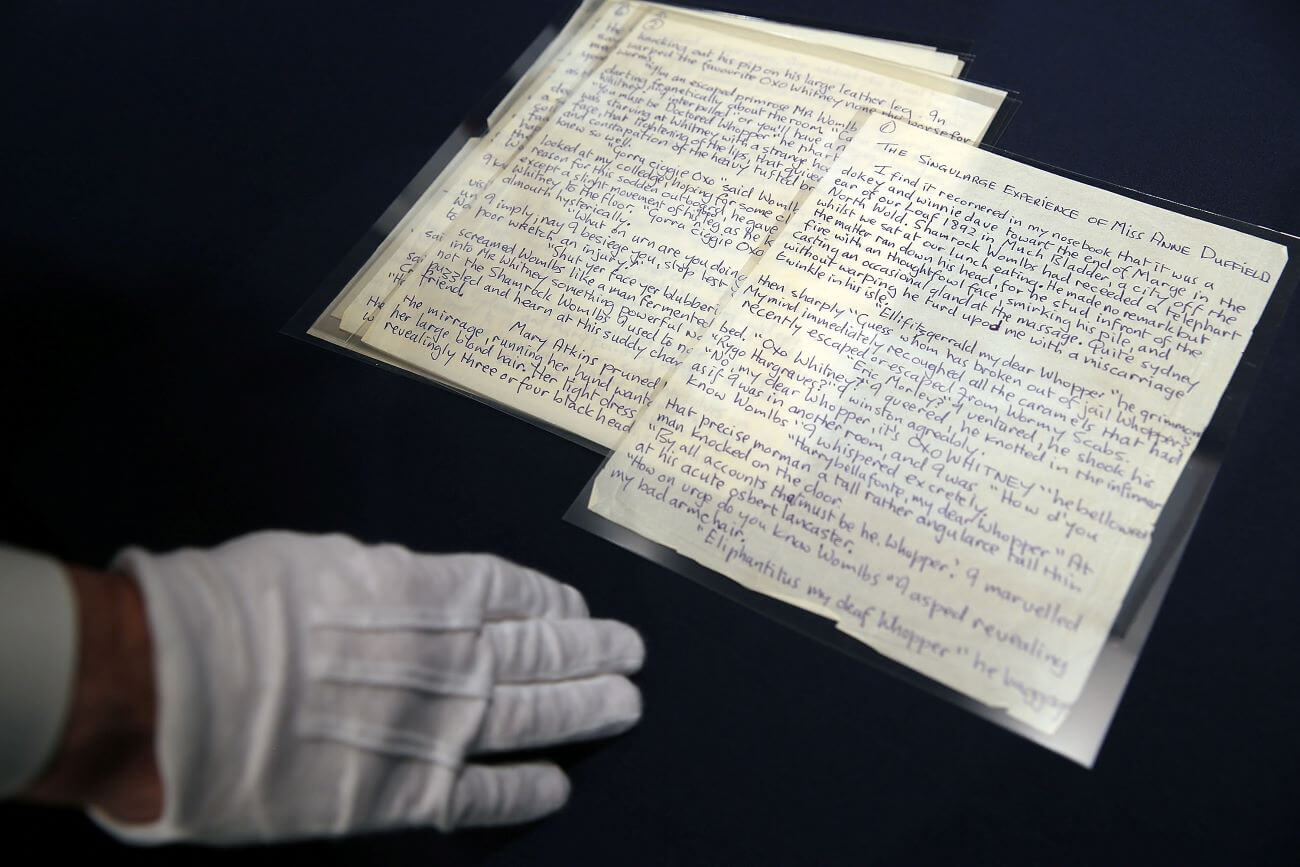 ①
THE SINGULARGE EXPERIENCE OF MISS ANNE DUFFIELD
I find it recornered in my nosebook that it was a
dokey and winnie dave towart the end of Marge in the
ear of our Loaf 1892 in Much Bladder, a city off the
North Wold. Shamrock Womlbs had receeded a telephart
whilst we sat at our lunch eating. He made no remark but
the matter ran down his head, for he stud infront of the
fire with an thoughtfowl face, smirking his pile, and
casting an occasional gland at the massage. Quite sydney
without warping he turd upod me with a miscarriage
twinkle in his isle.
"Ellifitzgerrald my dear Whopper" he grimmon
then sharply "Guess whom has broken out of jail Whopper?"
My mind immediately recoughed all the caramels that had
recently escaped or escaped from Wormy Scabs.
"Eric Morley?" I ventured, he shook his
bed. "Oxo Whitney?" I queered, he knotted in the infirmer
"Rygo Hargraves?" I winston agreably.
"No, my dear Whopper, it's OXO WHITNEY" he bellowed
as if I was in another room, and I was. "How d'you
know Womlbs" I whispered excretely.
"Harrybellafonte, my dear Whopper" At
that precise morman a tall rather angularce tall thin
man knocked on the door.
"By all accounts that must be he, Whopper." I marvelled
at his acute osbert lancaster.
"How on urge do you know Womlbs" I asped revealing
my bad armchair.
"Eliphantitus my deaf Whopper" he
②
knocking out his pip on his large leather leg. In
warped the favourite Oxo Whitney none the worse for
worms.
"I'm an escaped primrose Mr Womlb
darting frenetically about the room. "Ca
Whitney" I interpolled "or you'll have a n
"You must be Doctored Whopper" he phart
was starving at Whitney with a strange ho
face, that tightening of the lips, that quive
and constapation of the heavy tufted br
knew so well.
"Gorra ciggie Oxo" said Womlb
looked at my colledge, hoping for some c
reason for this sodden outboast, he gave
except a slight movement of his leg as he k
Whitney to the floor. "Gorra Ciggie Oxo
almouth hysterically.
"What on urn are you doing
I imply, nay I besiege you, stop lest
poor wretch an injury."
"Shut yer face yer blubberi
screamed Womlbs like a man fermented
into Mr Whitney something powerful
not the Shamrock Womlbs I used to
puzzled and hearn at this suddy chan
friend.
Mary Atkins pruned
the mirrage, running her hand want
her large blond hair. Her tight dress
revealingly three or four black head